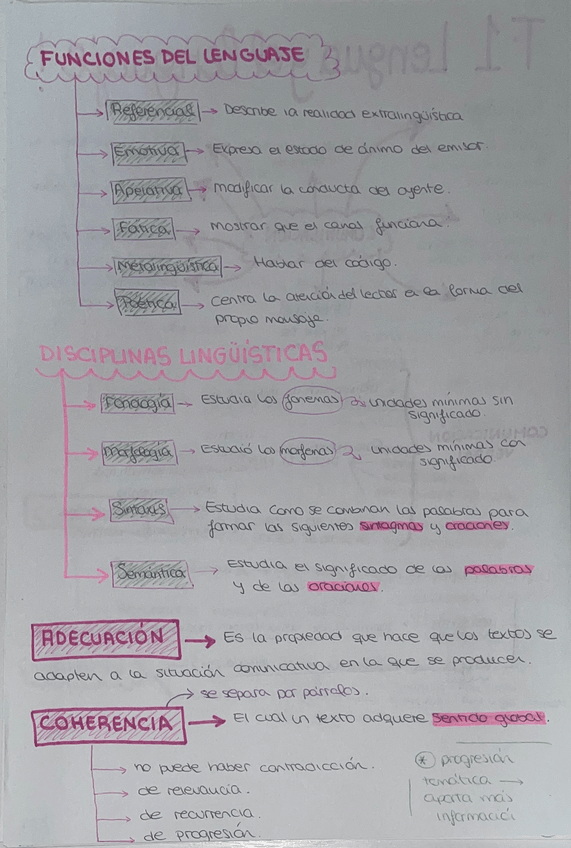 FUNCIONES DEL LENGUAJE
Referencial → Describe la realidad extralingüística
Emotiva → Expresa el estado de ánimo del emisor.
Apelativa → modificar la conducta del oyente.
Fática → mostrar que el canal funciona.
Metalingüística → Hablar del código.
Poética → Centra la atención del lector en la forma del
propio mensaje.
DISCIPLINAS LINGÜÍSTICAS
Fonología → Estudia los fonemas → unidades mínimas sin
significado.
Morfología → Estudia los morfemas → unidades mínimas con
significado.
Sintaxis → Estudia como se combinan las palabras para
formar las siguientes sintagmas y oraciones.
Semántica → Estudia el significado de las palabras
y de las oraciones.
ADECUACIÓN → Es la propiedad que hace que los textos se
adapten a la situación comunicativa en la que se producen.
→ se separa por párrafos.
COHERENCIA → El cual un texto adquiere sentido global.
→ no puede haber contradicción.
→ de relevancia.
→ de recurrencia.
→ de progresión.
* progresión
temática →
aporta más
informació